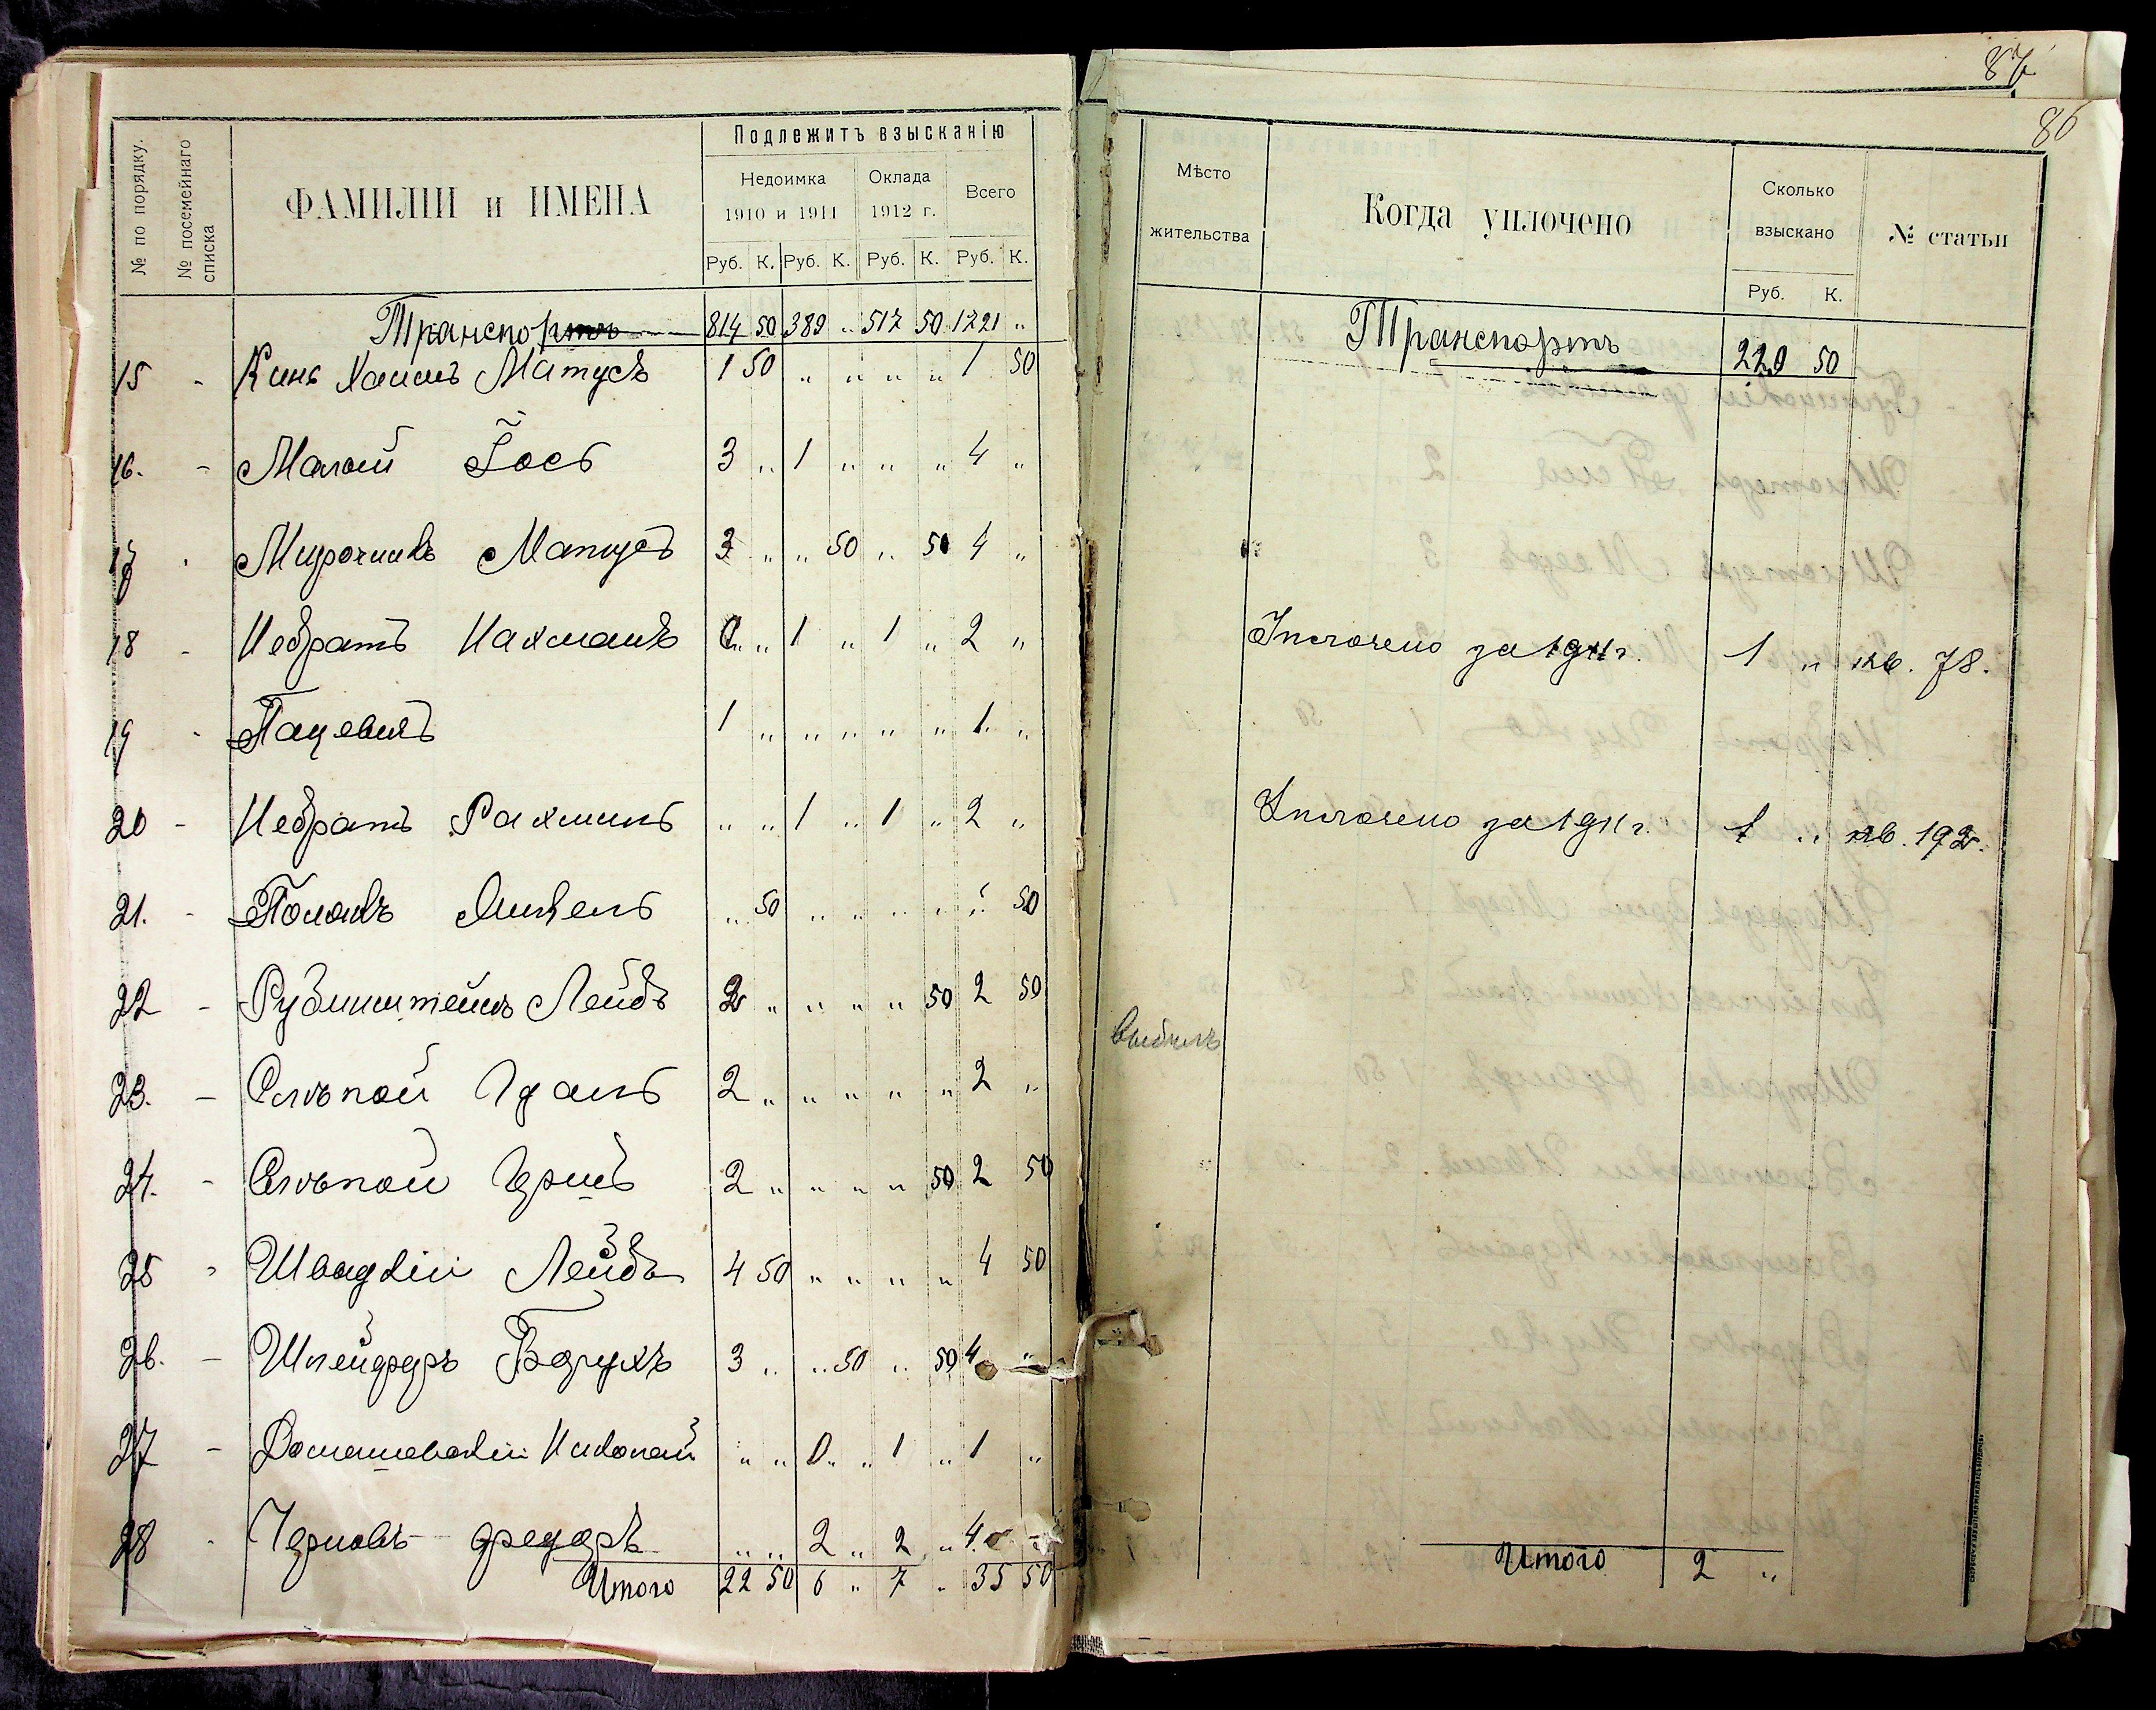 87
86
№ по порядку.
№ посемейнаго списка
ФАМИЛІИ и ИМЕНА
Подлежитъ взысканію
Недоимка
1910 и 1911
Оклада
1912 г.
Всего
Руб. К. Руб. К. Руб. К. Руб. К.
Транспортъ 814 50 389 „ 517 50 1721 „
15 - Кинъ Хаимъ Матусъ 1 50 „ „ „ „ 1 50
16. - Малый Іось 3 „ 1 „ „ „ 4 „
17 - Мирочникъ Матусъ 3 „ „ 50 „ 50 4 „
18 - Небратъ Нахманъ „ „ 1 „ 1 „ 2 „
19 - Пацевичъ 1 „ „ „ „ „ 1 „
20 - Небратъ Рахмиль „ „ 1 „ 1 „ 2 „
21. - Полякъ Анкель „ 50 „ „ „ „ „ 50
22 - Рубинштейнъ Лейбъ 2 „ „ „ „ 50 2 50
23. - Слѣпой Идаль 2 „ „ „ „ „ 2 „
24. - Слѣпой Гершъ 2 „ „ „ „ 50 2 50
25 - Швадкій Лейбъ 4 50 „ „ „ „ 4 50
26. - Шнейдеръ Борухъ 3 „ „ 50 „ 50 4 „
27 - Домашевскій Николай „ „ 0 „ 1 „ 1 „
28 - Черновъ Федоръ „ „ 2 „ 2 „ 4
Итого 22 50 6 „ 7 „ 35 50
Мѣсто
жительства
Когда уплочено
Сколько
взыскано
Руб. К.
№ статьи
Транспортъ 229 50
Уплочено за 1911 г. 1 „ кв. 78.
Уплочено за 1911 г. 1 „ кв. 192.
выбылъ
Итого 2 „